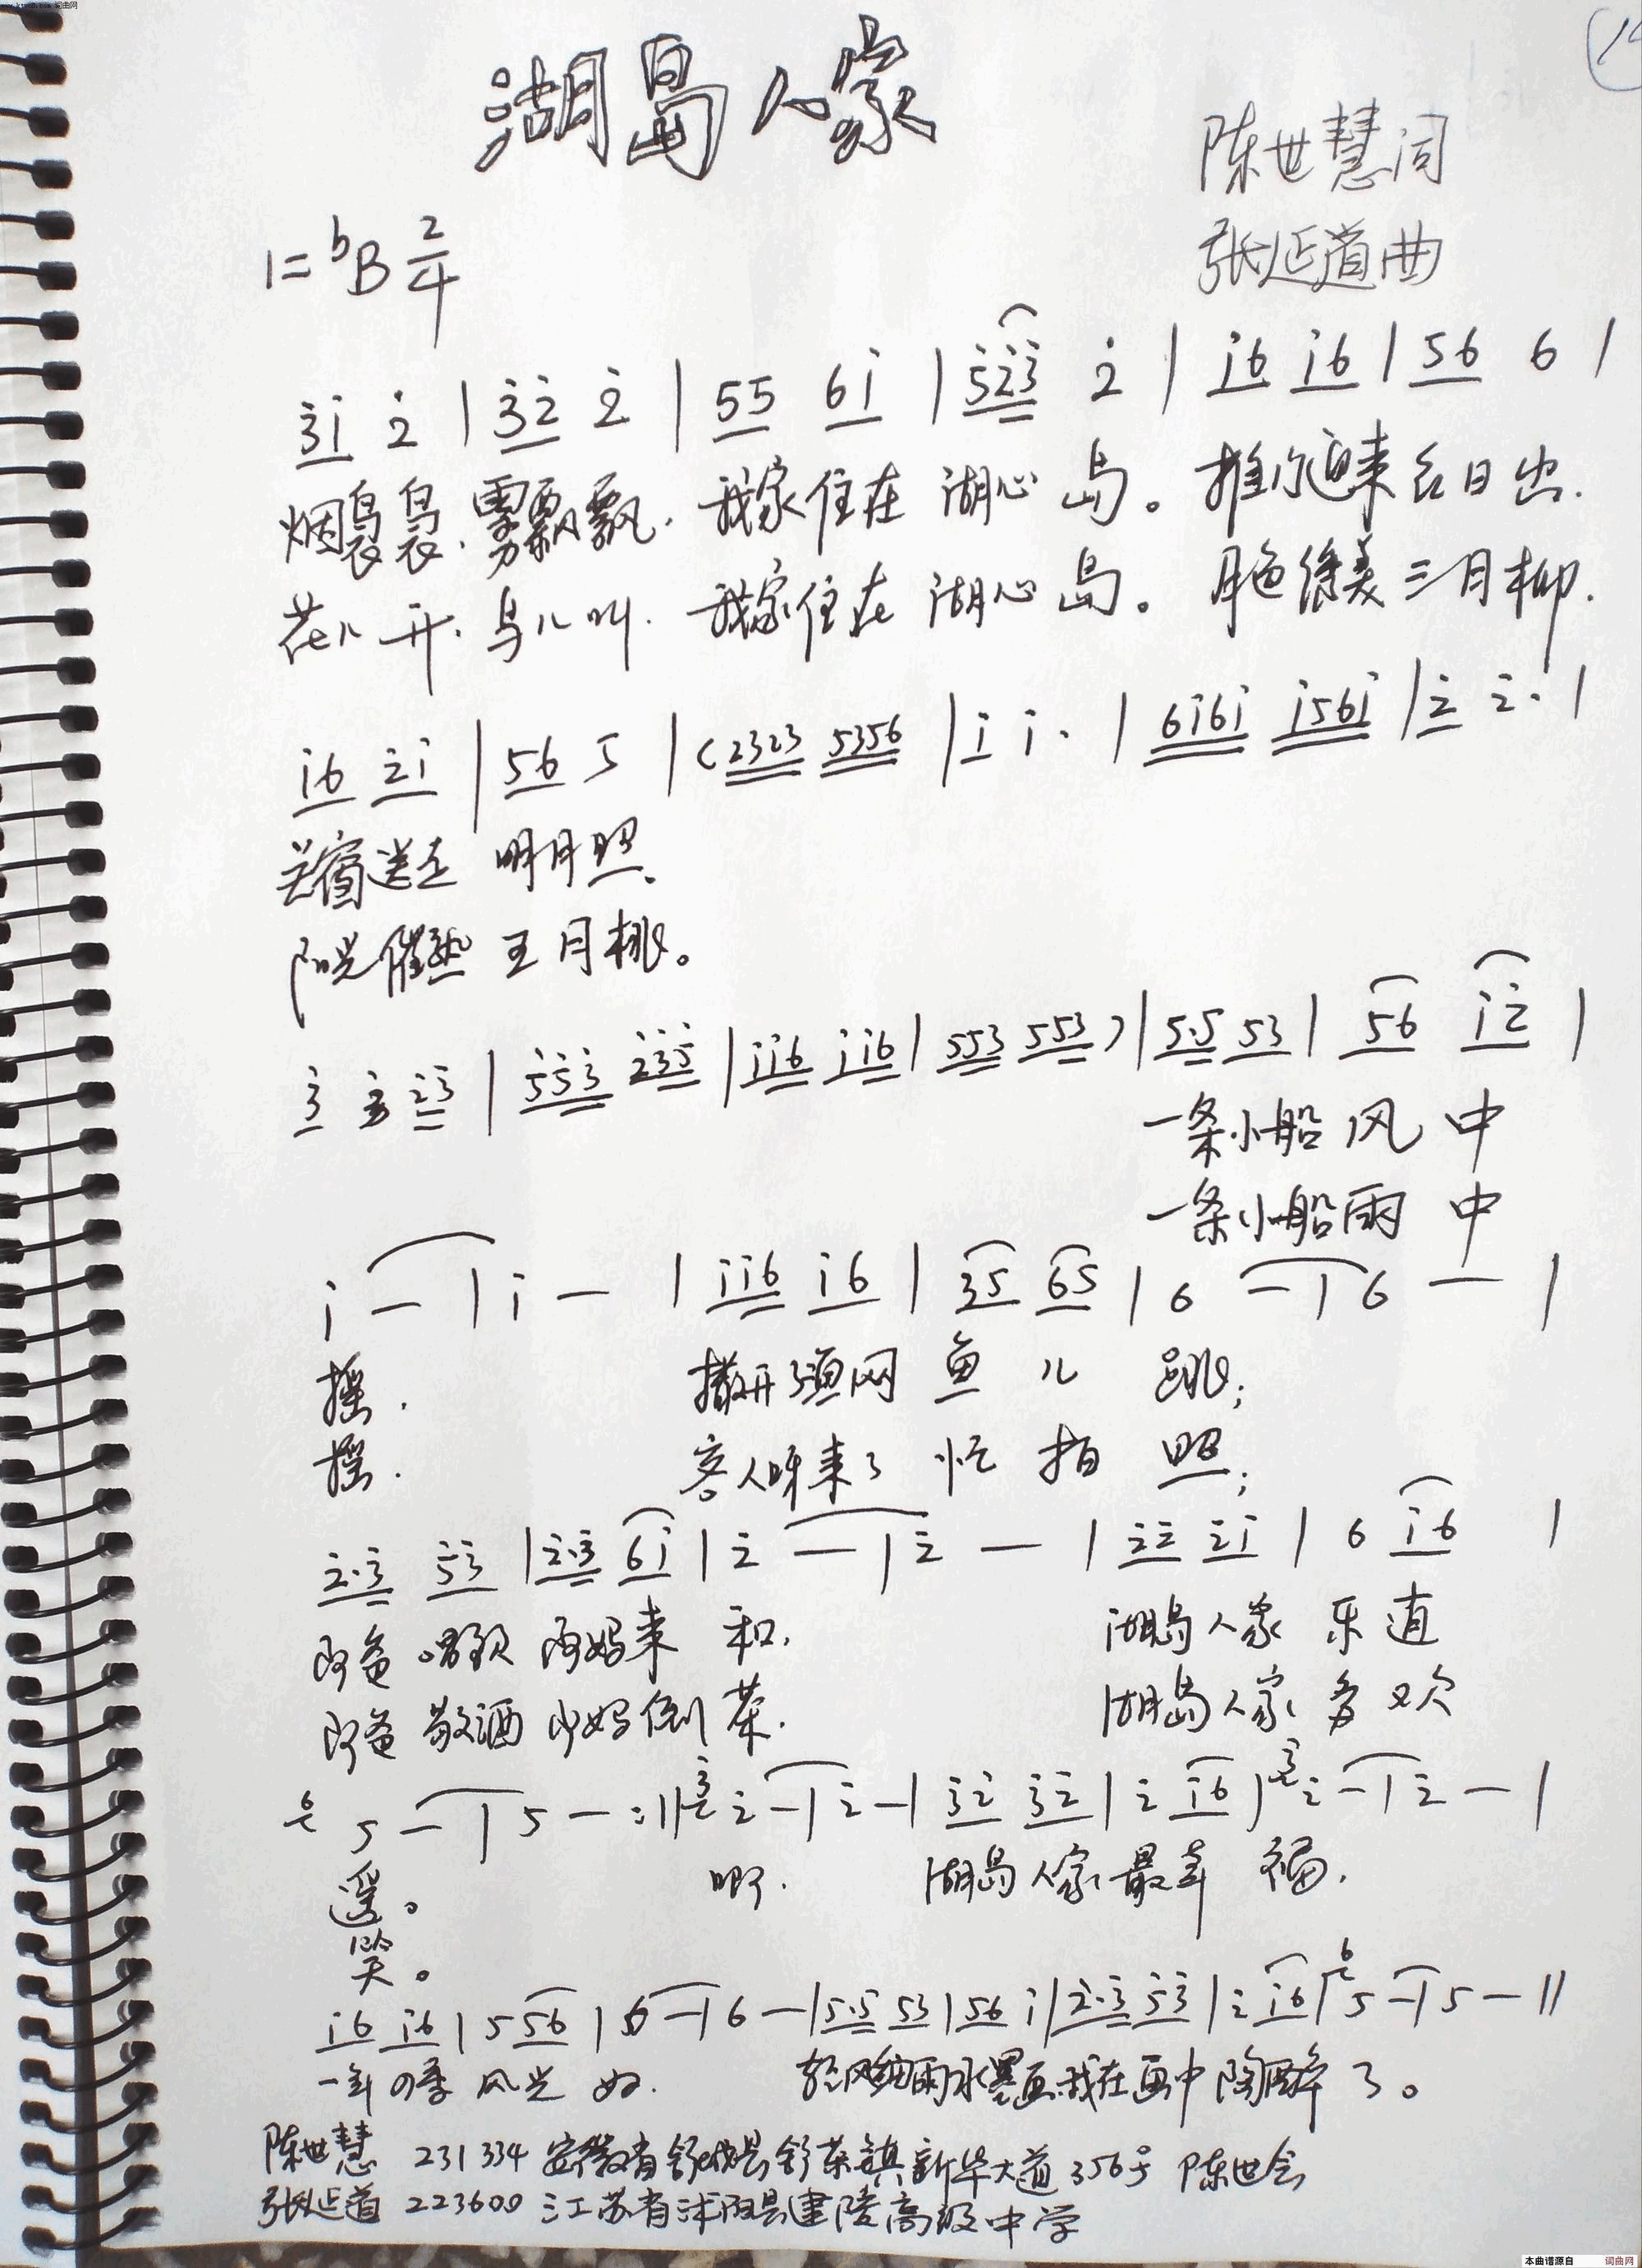 词曲网
湖岛人家
陈世慧词
张延道曲
1=bB 2/4
3̇1̇ 2̇ | 3̇2̇ 2̇ | 55 61̇ | 5̇2̇3̇ 2̇ | 1̇6 1̇6 | 56 6 |
烟袅袅.雾飘飘.我家住在 湖心 岛。推窗迎来红日出.
花儿开.鸟儿叫.我家住在 湖心 岛。月色绿美三月柳.
1̇6 2̇1̇ | 56 5 | (2323 5356 | 1̇ 1̇. | 61̇61̇ 1̇561̇ | 2̇ 2̇. |
关窗送走 明月照.
阳光催熟 五月桃。
3̇ 3̇ 2̇3̇ | 5̇5̇3̇ 2̇3̇5̇ | 1̇1̇6 1̇1̇6 | 553 553 ) | 5.5 53 | 56 1̇2̇ |
一条小船 风 中
一条小船 雨 中
1̇ — | 1̇ — | 1̇1̇6 1̇6 | 35 65 | 6 — | 6 — |
摇. 撒开渔网 鱼 儿 跳;
摇. 客人呀来了 忙 拍 照;
2̇.3̇ 5̇3̇ | 2̇.3̇ 61̇ | 2̇ — | 2̇ — | 2̇2̇ 2̇1̇ | 6 1̇6 |
阿爸 唱歌 阿妈来 和. 湖岛人家 乐 逍
阿爸 敬酒 阿妈倒 茶. 湖岛人家 多 欢
6 5 — | 5 — :|| 3̇ 2̇ — | 2̇ — | 3̇2̇ 3̇2̇ | 2̇ 1̇6 | 3̇ 2̇ — | 2̇ — |
遥。 啊. 湖岛人家 最幸 福.
笑。
1̇6 1̇6 | 5 56 | 6 — | 6 — | 5.5 53 | 56 1̇ | 2̇.3̇ 5̇3̇ | 2̇ 1̇6 | 6 5 — | 5 — ||
一年四季 风光 好. 轻风细雨水墨画我在画中 陶醉 了。
陈世慧 231334 安徽省舒城县舒茶镇新华大道356号 陈世会
张延道 223600 江苏省沭阳县建陵高级中学
本曲谱源自 词曲网